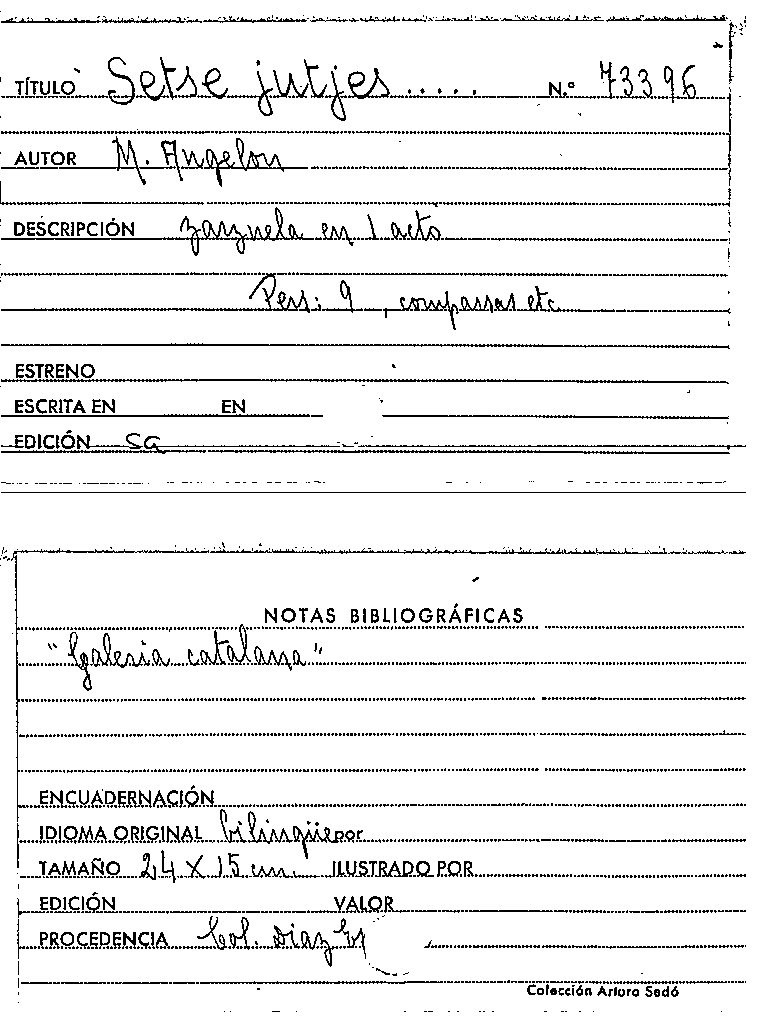 TÍTULO Setse jutjes ..... N.º 73396
AUTOR M. Angelon
DESCRIPCIÓN zarzuela en 1 acto
Pers: 9, compassas etc
ESTRENO
ESCRITA EN EN
EDICIÓN sa
NOTAS BIBLIOGRÁFICAS
"Galeria catalana"
ENCUADERNACIÓN
IDIOMA ORIGINAL bilingüe por
TAMAÑO 24 X 15 cm. ILUSTRADO POR
EDICIÓN VALOR
PROCEDENCIA Col. Diaz
Colección Arturo Sedó